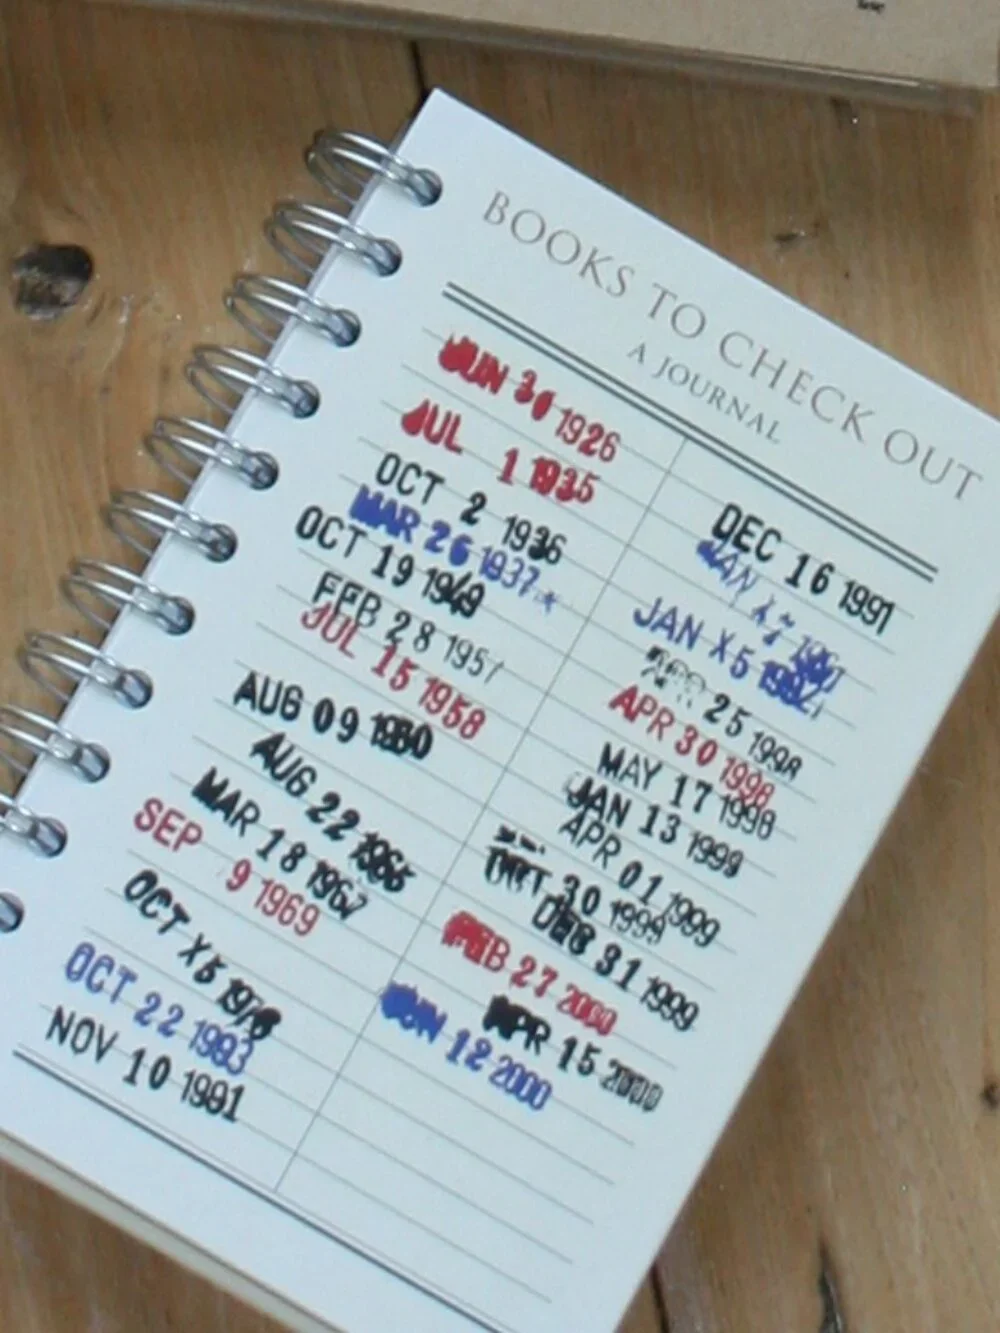 BOOKS TO CHECK OUT
A JOURNAL
JUN 30 1926
JUL 1 1935
OCT 2 1936
MAR 26 1937
OCT 19 1949
FEB 28 195
JUL 15 1958
AUG 09
AUG 22 1965
MAR 18 1967
SEP 9 1969
OCT X5
OCT 22 1983
NOV 10 1991
DEC 16 1991
JAN
JAN X5
25 1998
APR 30 1998
MAY 17 1998
JAN 13 1999
APR 01 1999
OCT 30 1999
DEC 31 1999
FEB 27 2000
APR 15 2000
JUN 12 2000